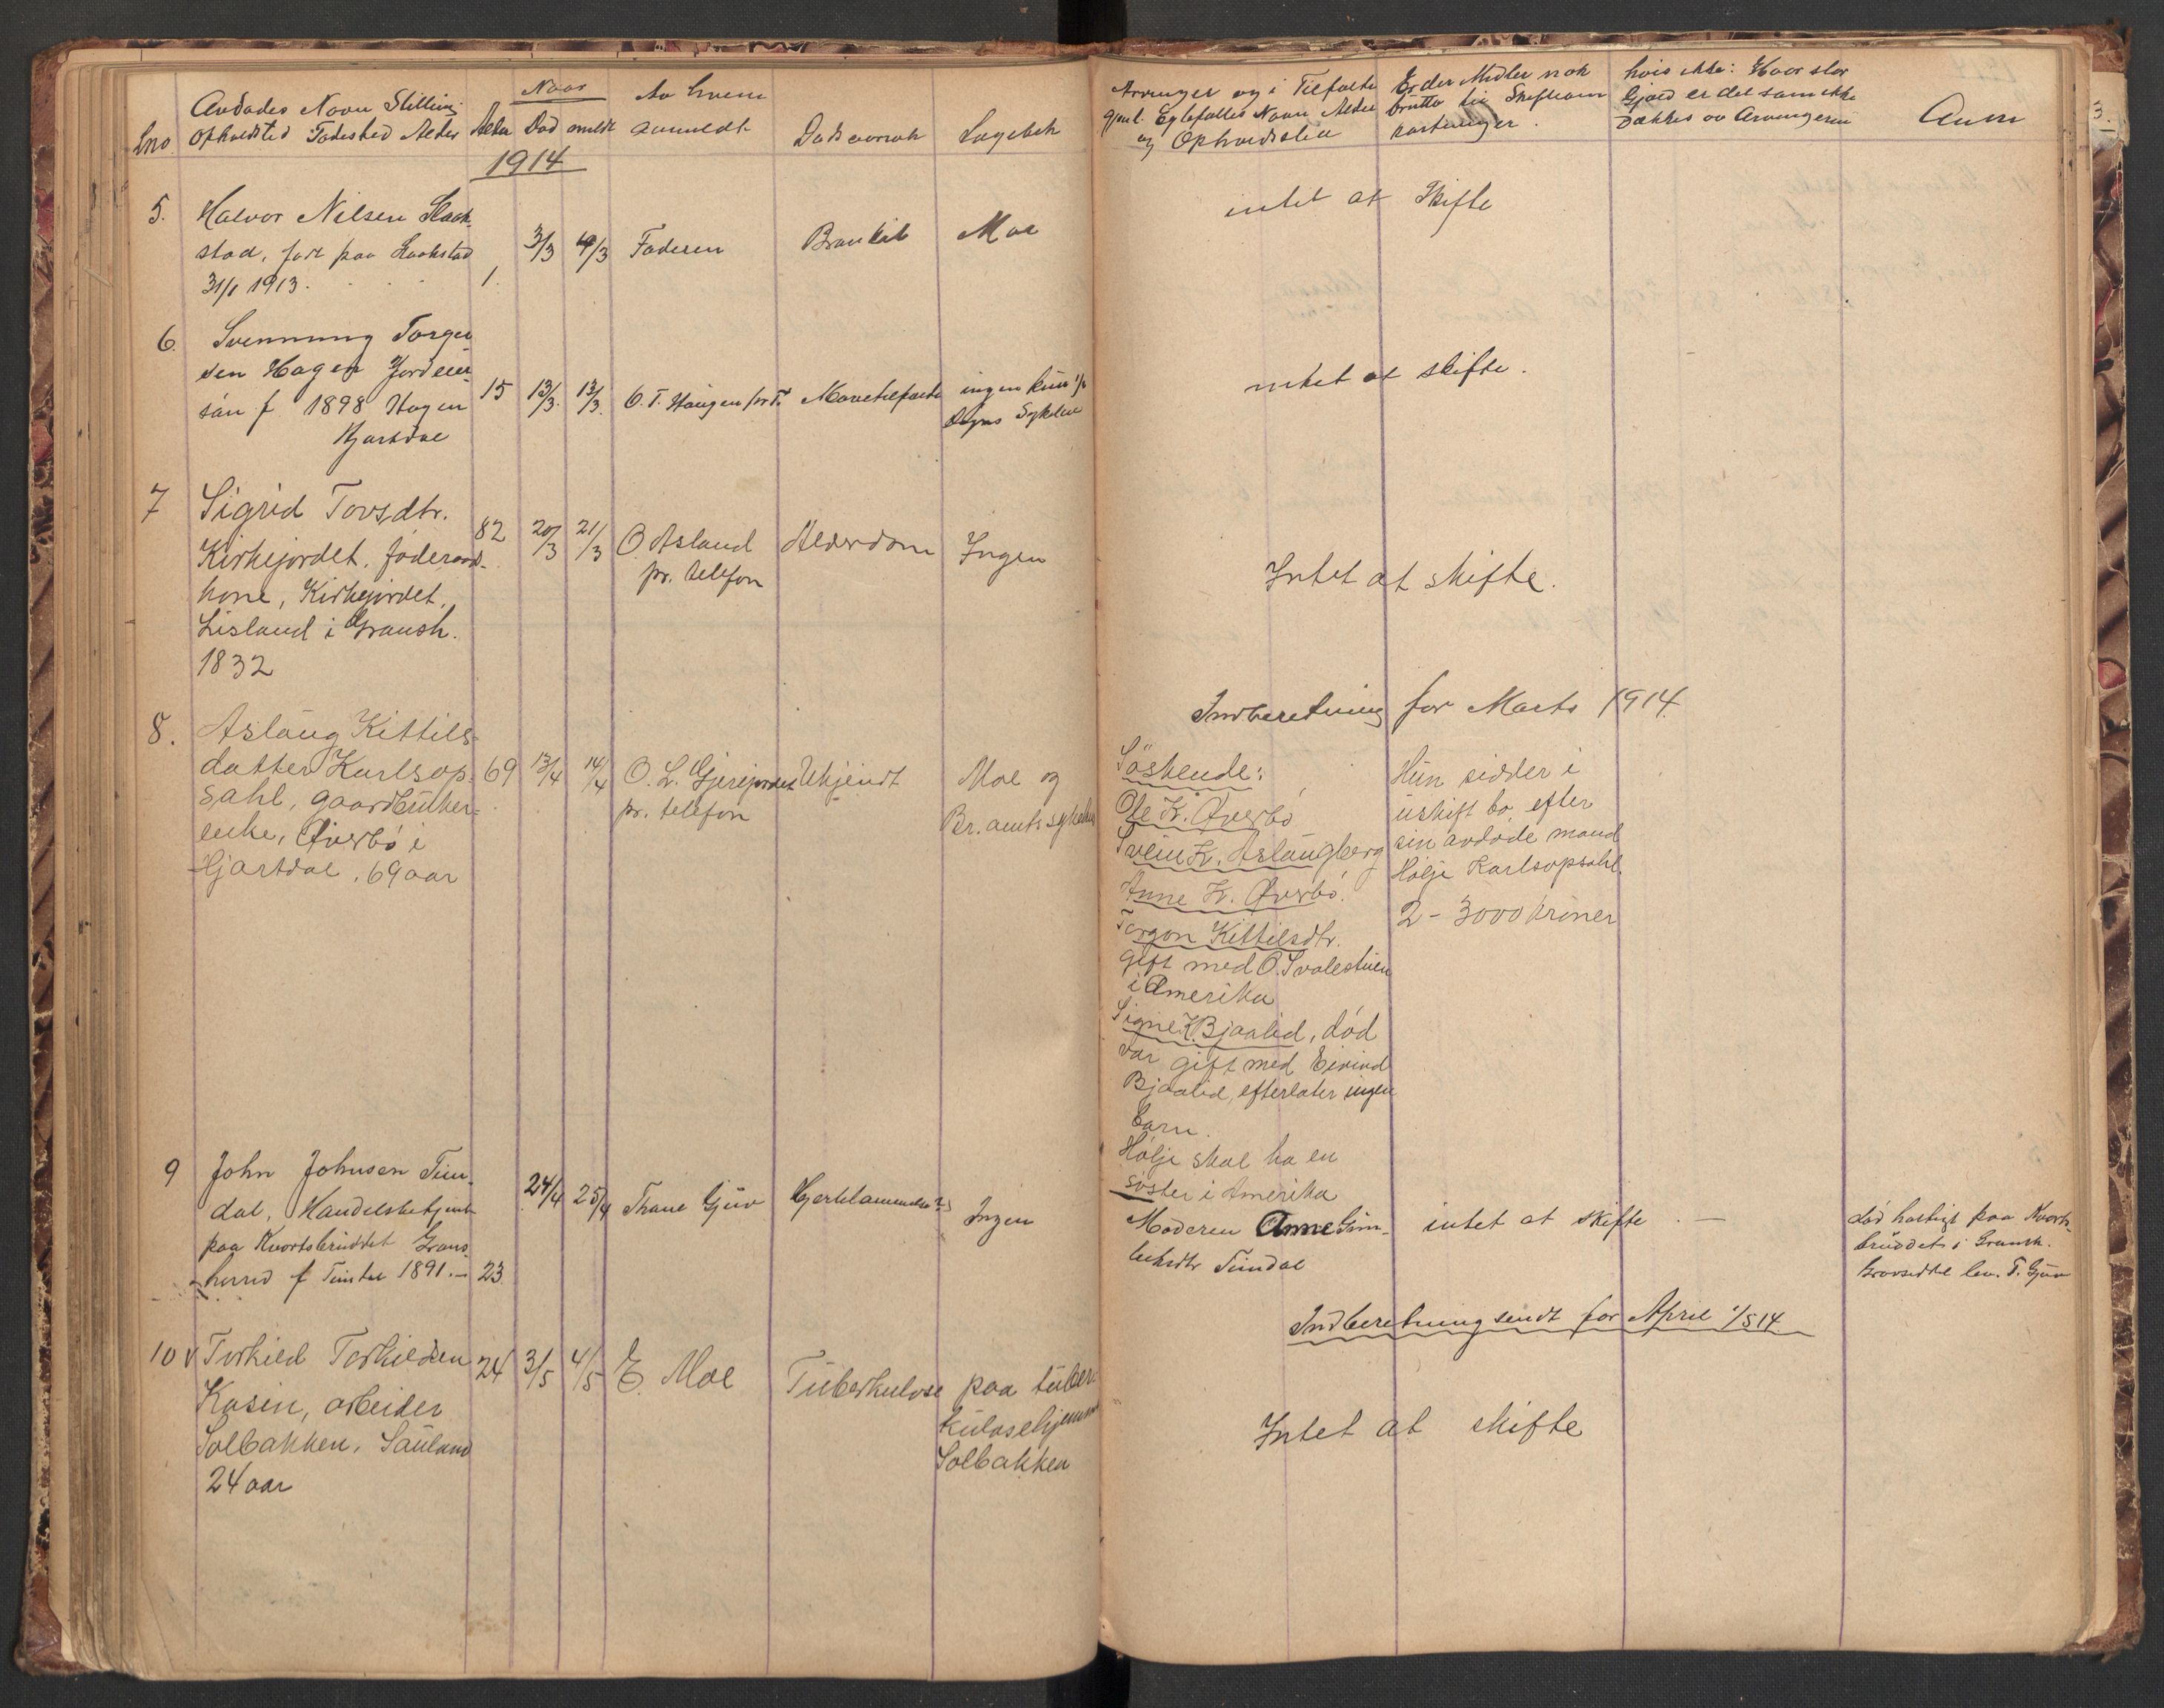 Lno
Avdødes Navn Stilling
Opholdsted Fødested Alder
Alder
Naar
Død
meldt
Av hvem
anmeldt
Dødsaarsak
Lægebeh
1914
5. Halvor Nilsen
stad, født paa
31/1 1913.
1. 3/3 4/3 Faderen Bronkit Moe
6. Svennung Torgei
sen Hagen Jordeier
søn f 1898 Hagen
Hjartdal
15 13/3 13/3 O. T. Haugen pr T. Mavetilfælde ingen kun
7 Sigrid Tovsdtr.
Kirkejordet, føderaads-
kone, Kirkejordet,
Lisland i Gransh.
1832
82 20/3 21/3 O. Åsland
pr. telefon
Alderdom Ingen
8. Aslaug Kittils-
datter Karlsop-
sahl, gaardbruker-
enke, Øverbø i
Hjartdal, 69 aar
69 13/4 14/4 O. L. Gjerejordet
pr. telefon
Ukjendt Moe og
Br. amts sykehus
9 John Johnsen Tin-
dal, Handelsbetjent
paa Kvartsbruddet Grans-
herred f Tindal 1891. - 23
24/4 25/4 Thane Gjuv Hjertelammelse? Ingen
10 v Torkild Torkildsen
Kasin, arbeider
Solbakken, Sauland
24 aar
24 3/5 4/5 E. Moe Tuberkulose paa tuber-
kulosehjemmet
Solbakken
3.
Arvinger og i Tilfælde
gjenl. Egtefælles Navn Alder
og Opholdssted
Er der Midler nok
brutto til Skifteom
kostninger.
hvis ikke: Hvor stor
Gjæld er det som ikke
dækkes av Arvingerne
Anm
intet at Skifte
intet at skifte.
Intet at skifte.
Indberetning for Marts 1914.
Søskende:
Ole K. Øverbø
Svein K. Aslaugberg
Anne K. Øverbø.
Torgon Kittilsdtr.
gift med O. Svalestuen
i Amerika
Signe K. Bjaalid, død
var gift med Eivind
Bjaalid, efterlater ingen
barn.
Hølje skal ha en
søster i Amerika
Hun sidder i
uskift bo efter
sin avdøde mand
Hølje Karlsopsahl.
2 - 3000 kroner
Moderen Anne Gun-
leiksdtr Tindal
intet at skifte . —
død hastigt paa Kvarts-
bruddet i Gransh.
Gravseddel lev. T. Gjuv
Indberetning sendt for April 1/5 14.
Intet at skifte